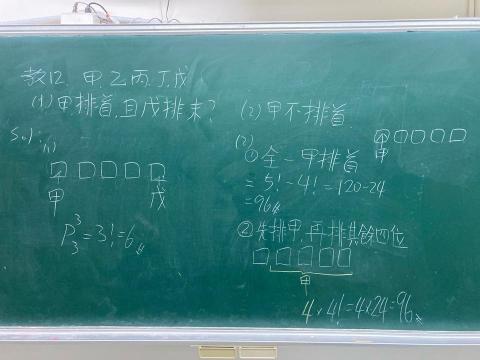 教12 甲乙丙丁戊
(1) 甲排首,且戊排末?
Sol:(1)
甲 戊
P³₃=3!=6
(2) 甲不排首
(2)
甲
① 全-甲排首
=5!-4!=120-24
=96
② 先排甲,再排其餘四位
甲
4×4!=4×24=96